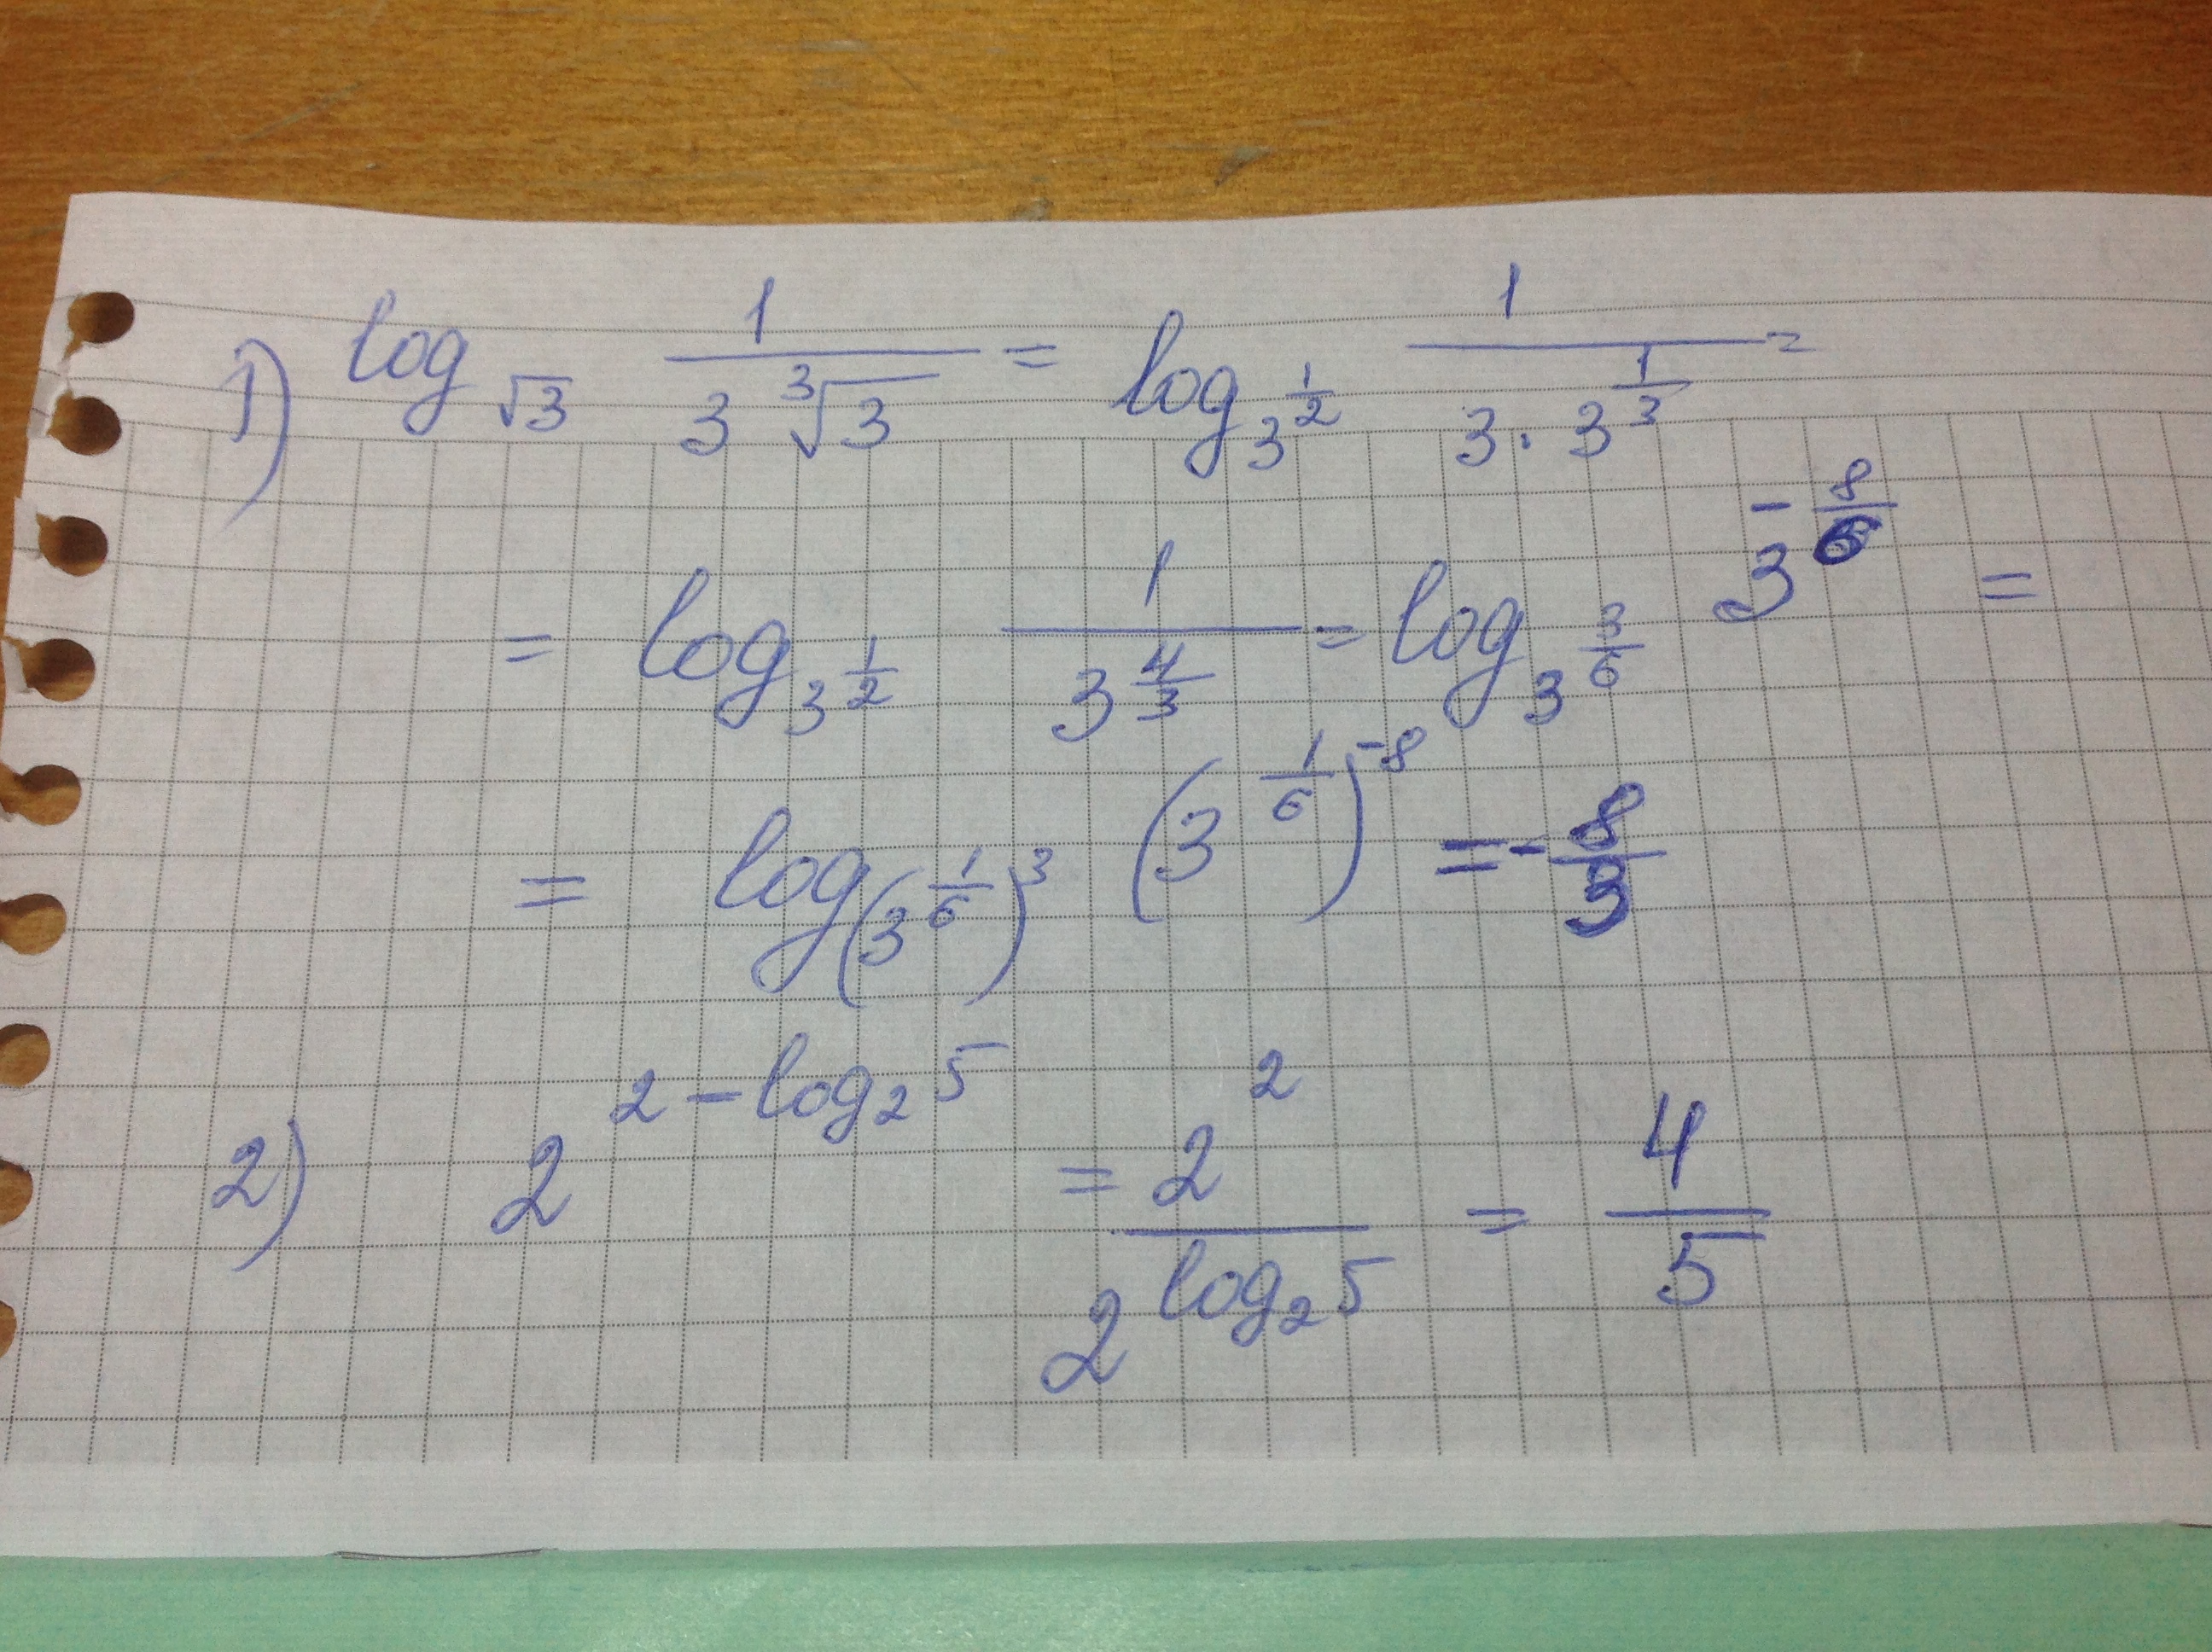 1) log_{√3} 1/(3∛3) = log_{3^{1/2}} 1/(3·3^{1/3}) =
= log_{3^{1/2}} 1/3^{4/3} = log_{3^{3/6}} 3^{-8/6} =
= log_{(3^{1/6})^3} (3^{1/6})^{-8} = -8/3
2) 2^{2-log_2 5} = 2^2/2^{log_2 5} = 4/5